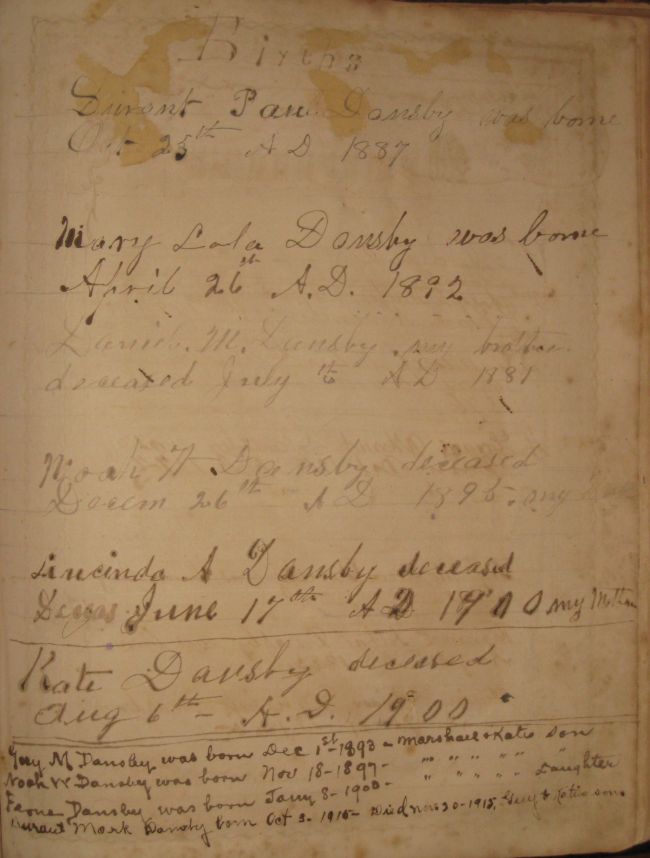 Births
Durant Paul Dansby was borne
Oct 25th A D 1887
Mary Lola Dansby was borne
April 26th A.D. 1892
M. Dansby my brother
deceased July A D 1881
Noah W Dansby deceased
Decem 26th A D 1895 my
Lucinda A Dansby deceased
June 17th A D 1900 my Mother
Kate Dansby deceased
Aug 6th A. D. 1900
Guy M Dansby was born Dec 1st - 1893 - Marshall & Katie son
Noah W Dansby was born Nov 18 - 1897 - " " " " "
Dansby was born Jany 8 - 1900 - " " " " " Daughter
Durant Mark Dansby born Oct 3 - 1915 - Died Nov 20 - 1915, Guy & Katie son